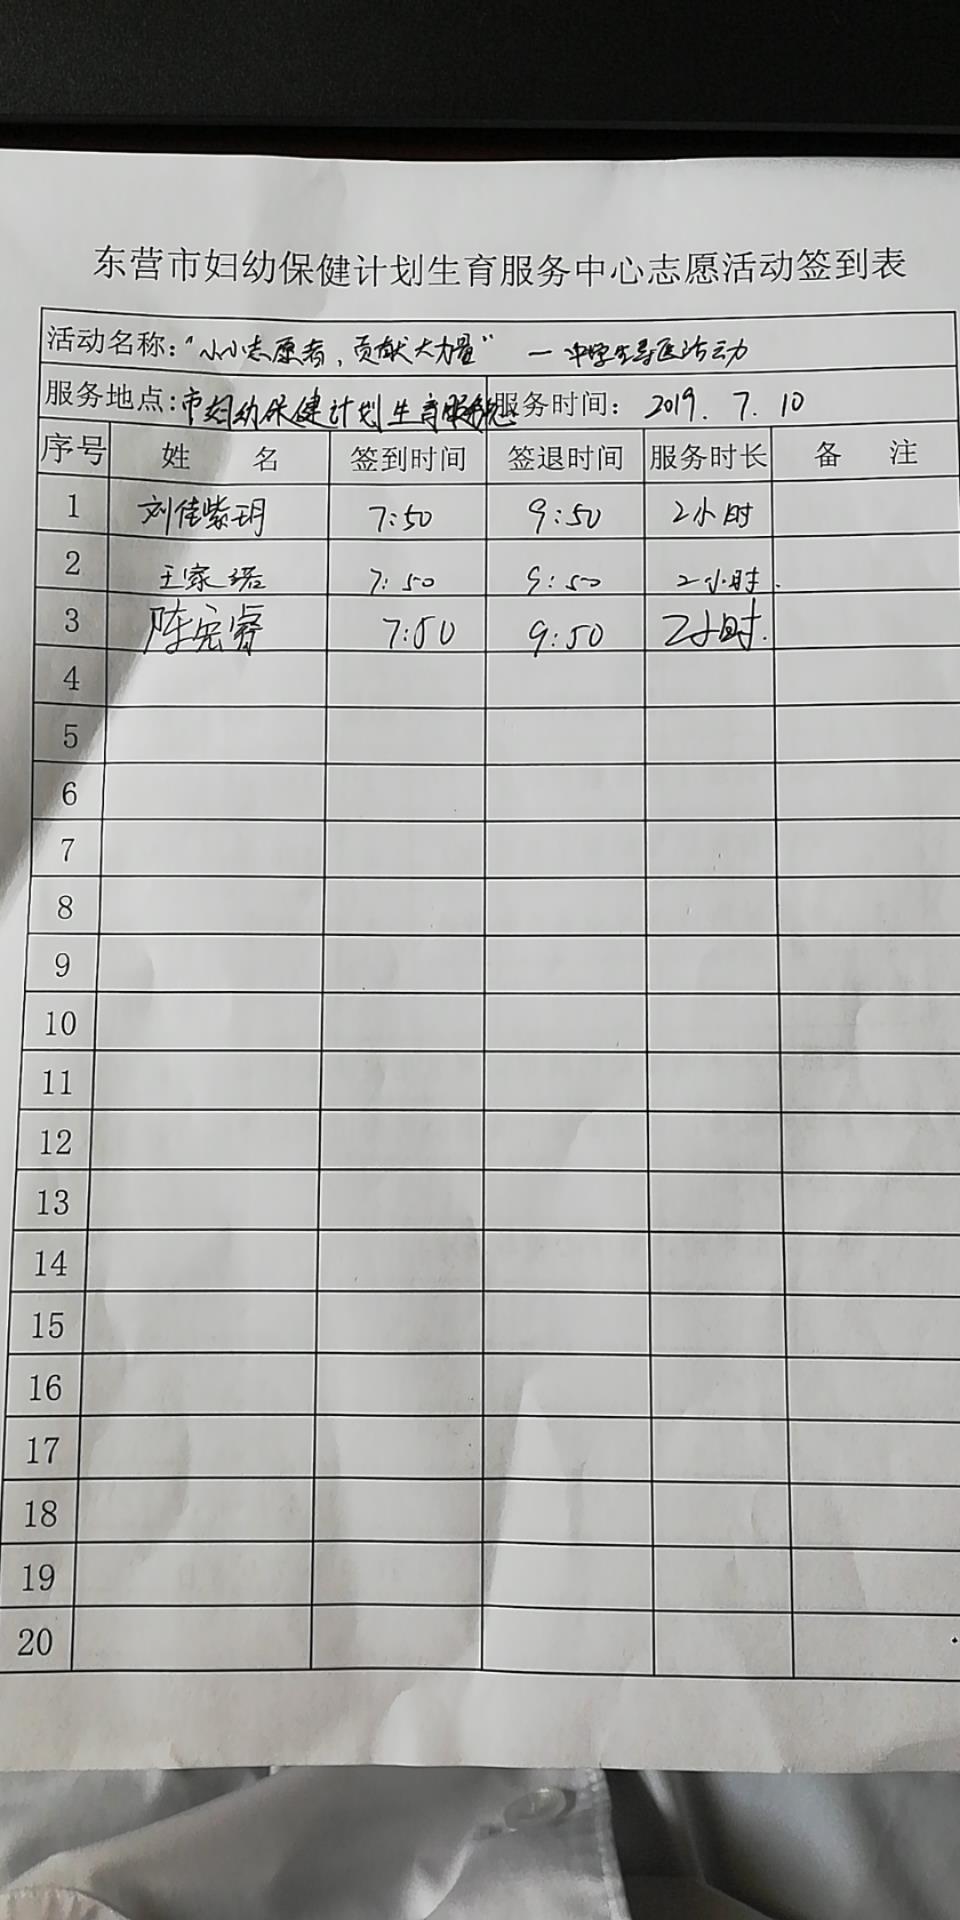 东营市妇幼保健计划生育服务中心志愿活动签到表
活动名称:“小小志愿者,贡献大力量” — 中学生导医活动
服务地点:市妇幼保健计划生育服务中心 服务时间: 2019. 7. 10
序号 姓 名 签到时间 签退时间 服务时长 备 注
1 刘佳紫玥 7:50 9:50 2小时
2 王家珺 7:50 9:50 2小时.
3 陈宏睿 7:50 9:50 2小时.
4
5
6
7
8
9
10
11
12
13
14
15
16
17
18
19
20